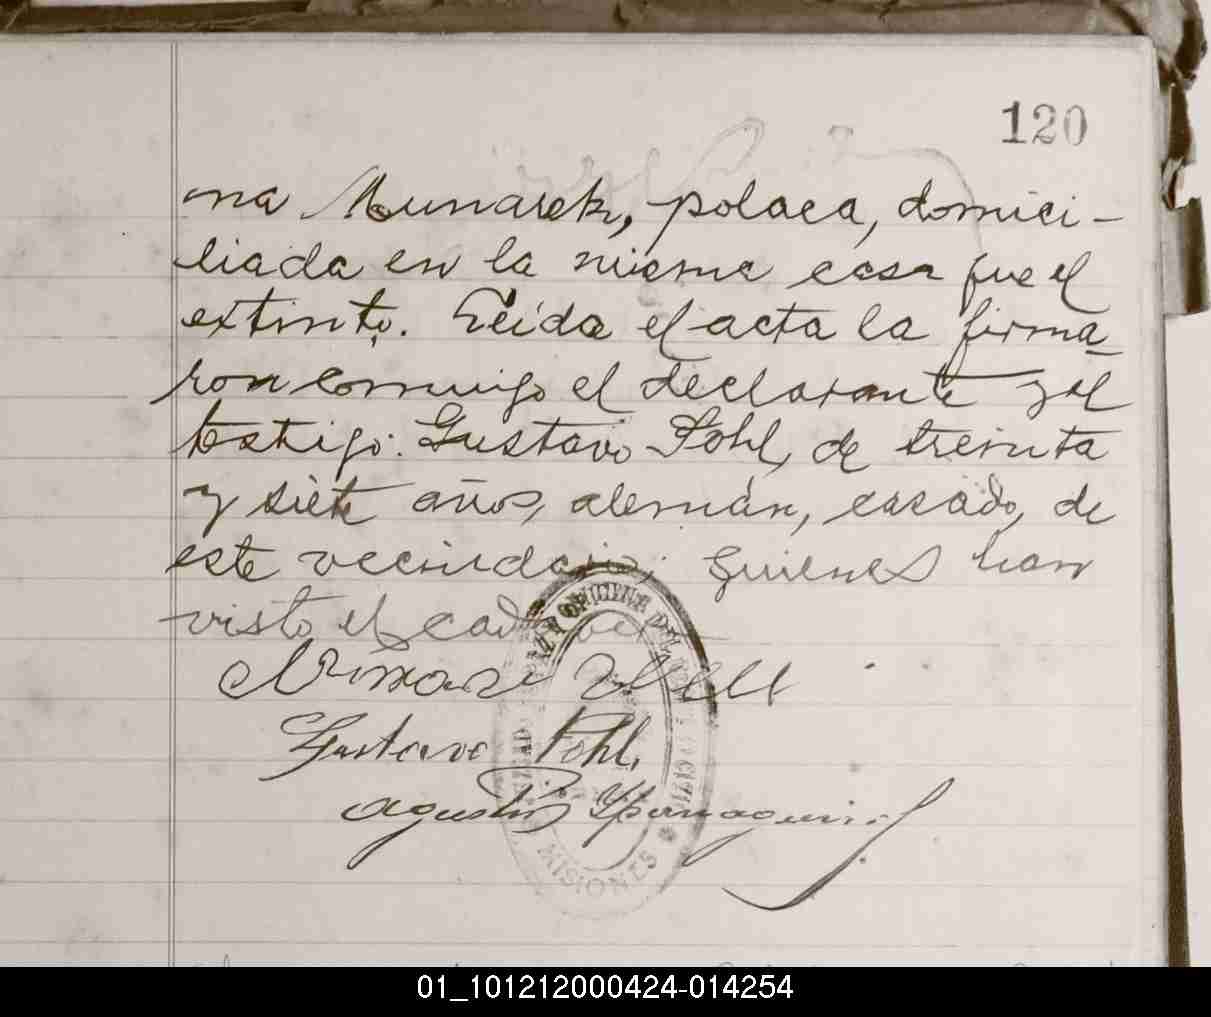 120
na Munarek, polaca, domici-
liada en la misma casa fue el
extinto. Leída el acta la firma-
ron conmigo el declarante y el
testigo: Gustavo Pohl, de treinta
y siete años, alemán, casado, de
este vecindario; quienes han
visto el cadaver
Gustavo Pohl.
Agustín
MISIONES
01_101212000424-014254